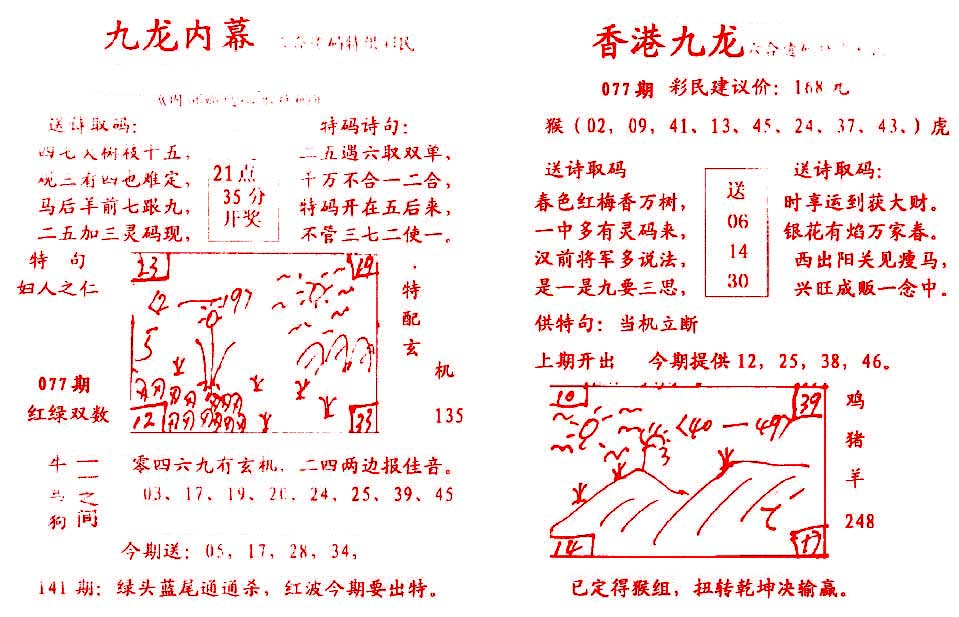 九龙内幕
送诗取码：
四七大树枝十五，
观三有四也难定，
马后羊前七跟九，
二五加三灵码现，
21点
35分
开奖
特码诗句：
二五遇六取双单，
千万不合一二合，
特码开在五后来，
不管三七二使一。
特 句
妇人之仁
077期
红绿双数
23
19
12
33
特
配
玄
机
135
牛
马
狗
一
二
之
间
零四六九有玄机，二四两边报佳音。
03、17、19、20、24、25、39、45
今期送：05，17，28，34，
141期：绿头蓝尾通通杀，红波今期要出特。
香港九龙
077期 彩民建议价：168元
猴（02，09，41、13、45、24、37、43、）虎
送诗取码
春色红梅香万树，
一中多有灵码来，
汉前将军多说法，
是一是九要三思，
送
06
14
30
送诗取码：
时享运到获大财。
银花有焰万家春。
西出阳关见瘦马，
兴旺成贩一念中。
供特句：当机立断
上期开出 今期提供12，25，38，46。
10
39
<40—49>
14
17
鸡
猪
羊
248
已定得猴组，扭转乾坤决输赢。